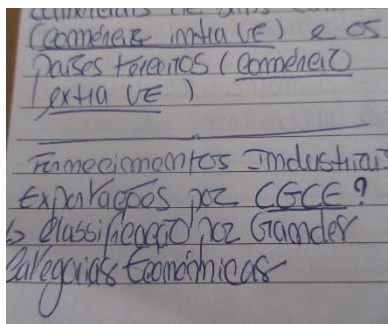 (comércio intra UE) e os
países terceiros (comércio
extra UE)
Fornecimentos Industriais
Exportações por CGCE?
↳ Classificação por Grandes
Categorias Económicas